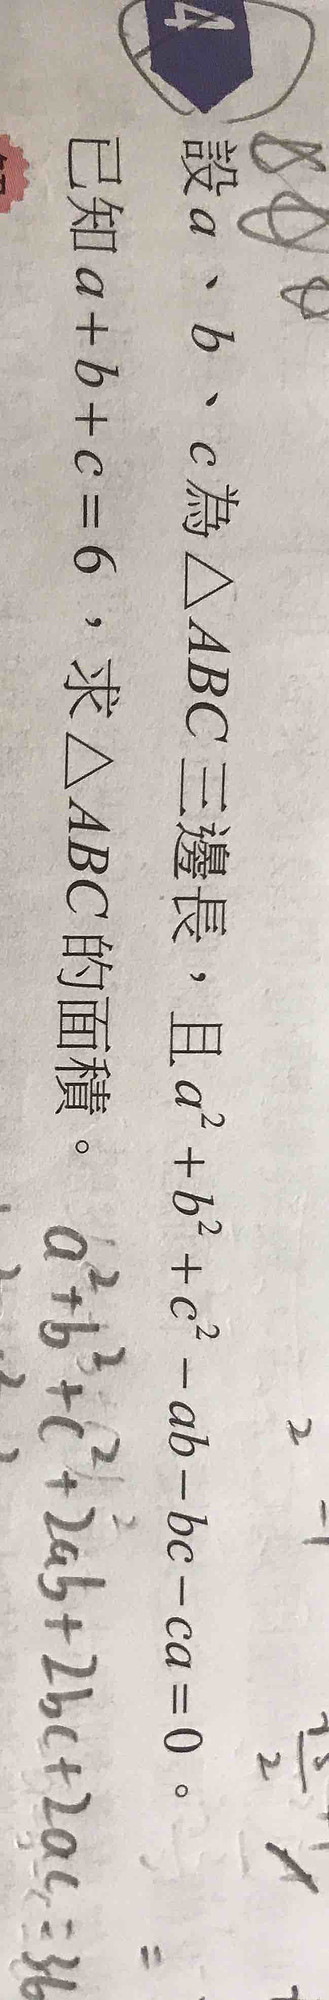 4
設a、b、c為△ABC三邊長，且a²+b²+c²-ab-bc-ca=0。
已知a+b+c=6，求△ABC的面積。
a²+b²+c²+2ab+2bc+2ac=36